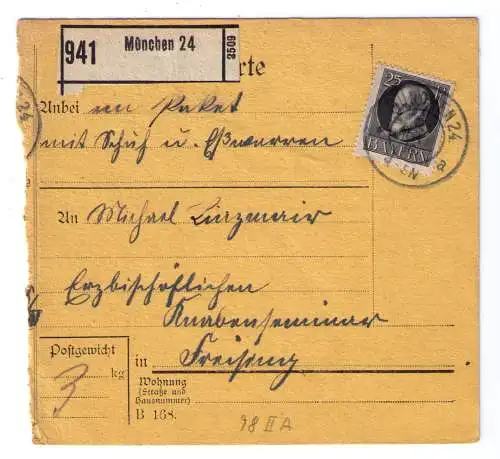 941 München 24 2509
rte
25
BAYERN
24
24 a
Anbei ein Paket
mit Schuh u. Eßwarren
An Michael Linzmair
Erzbischöflichen
Knabenseminar
Postgewicht
3 kg
in Freising
Wohnung
(Straße und
Hausnummer)
B 168.
98 II A